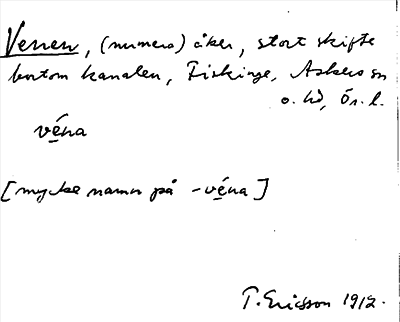 Venen, (numera) åker, stort skifte
bortom kanalen, Fiskinge, Askers sn
o. hd, Ör. l.
véna
[mycke namn på -véna]
T. Ericsson 1912.